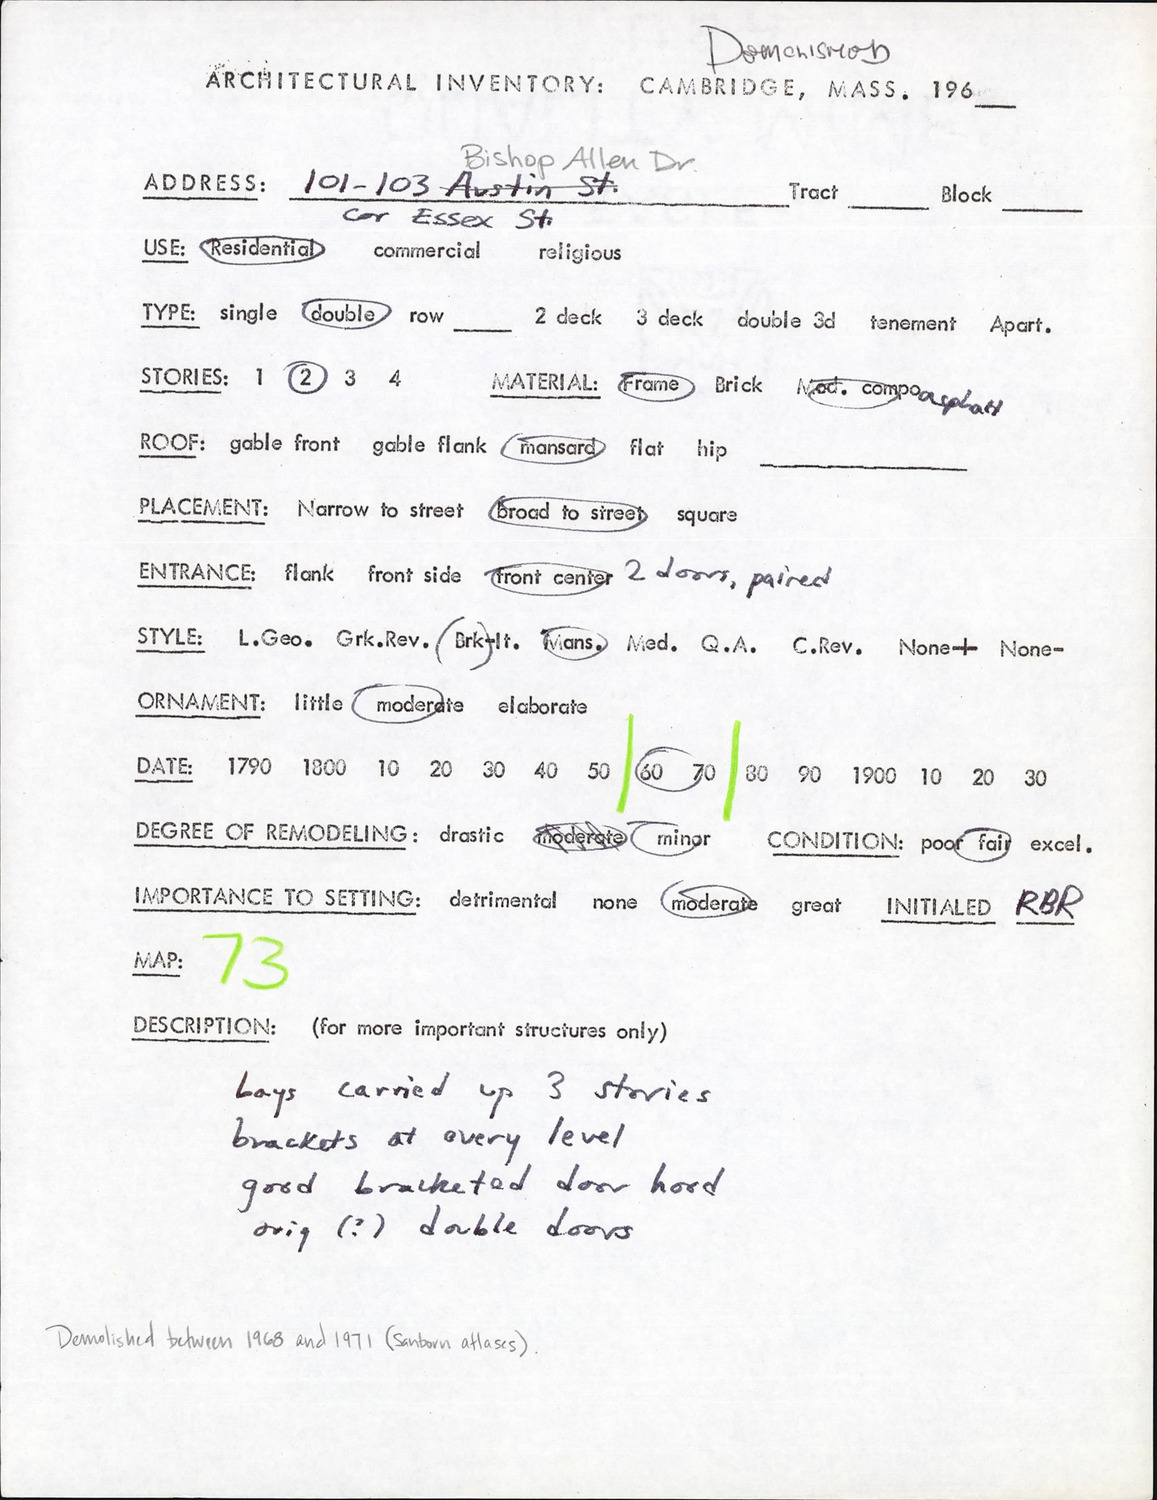 DEMOLISHED
ARCHITECTURAL INVENTORY: CAMBRIDGE, MASS. 196__
Bishop Allen Dr.
ADDRESS: 101-103 Austin St. Tract ____ Block ____
cor Essex St.
USE: Residential commercial religious
TYPE: single double row ____ 2 deck 3 deck double 3d tenement Apart.
STORIES: 1 2 3 4 MATERIAL: Frame Brick Mod. compo asphalt
ROOF: gable front gable flank mansard flat hip ____
PLACEMENT: Narrow to street broad to street square
ENTRANCE: flank front side front center 2 doors, paired
STYLE: L.Geo. Grk.Rev. Brk-It. Mans. Med. Q.A. C.Rev. None+ None-
ORNAMENT: little moderate elaborate
DATE: 1790 1800 10 20 30 40 50 60 70 80 90 1900 10 20 30
DEGREE OF REMODELING: drastic moderate minor CONDITION: poor fair excel.
IMPORTANCE TO SETTING: detrimental none moderate great INITIALED RBR
MAP: 73
DESCRIPTION: (for more important structures only)
bays carried up 3 stories
brackets at every level
good bracketed door hood
orig (?) double doors
Demolished between 1968 and 1971 (Sanborn atlases).